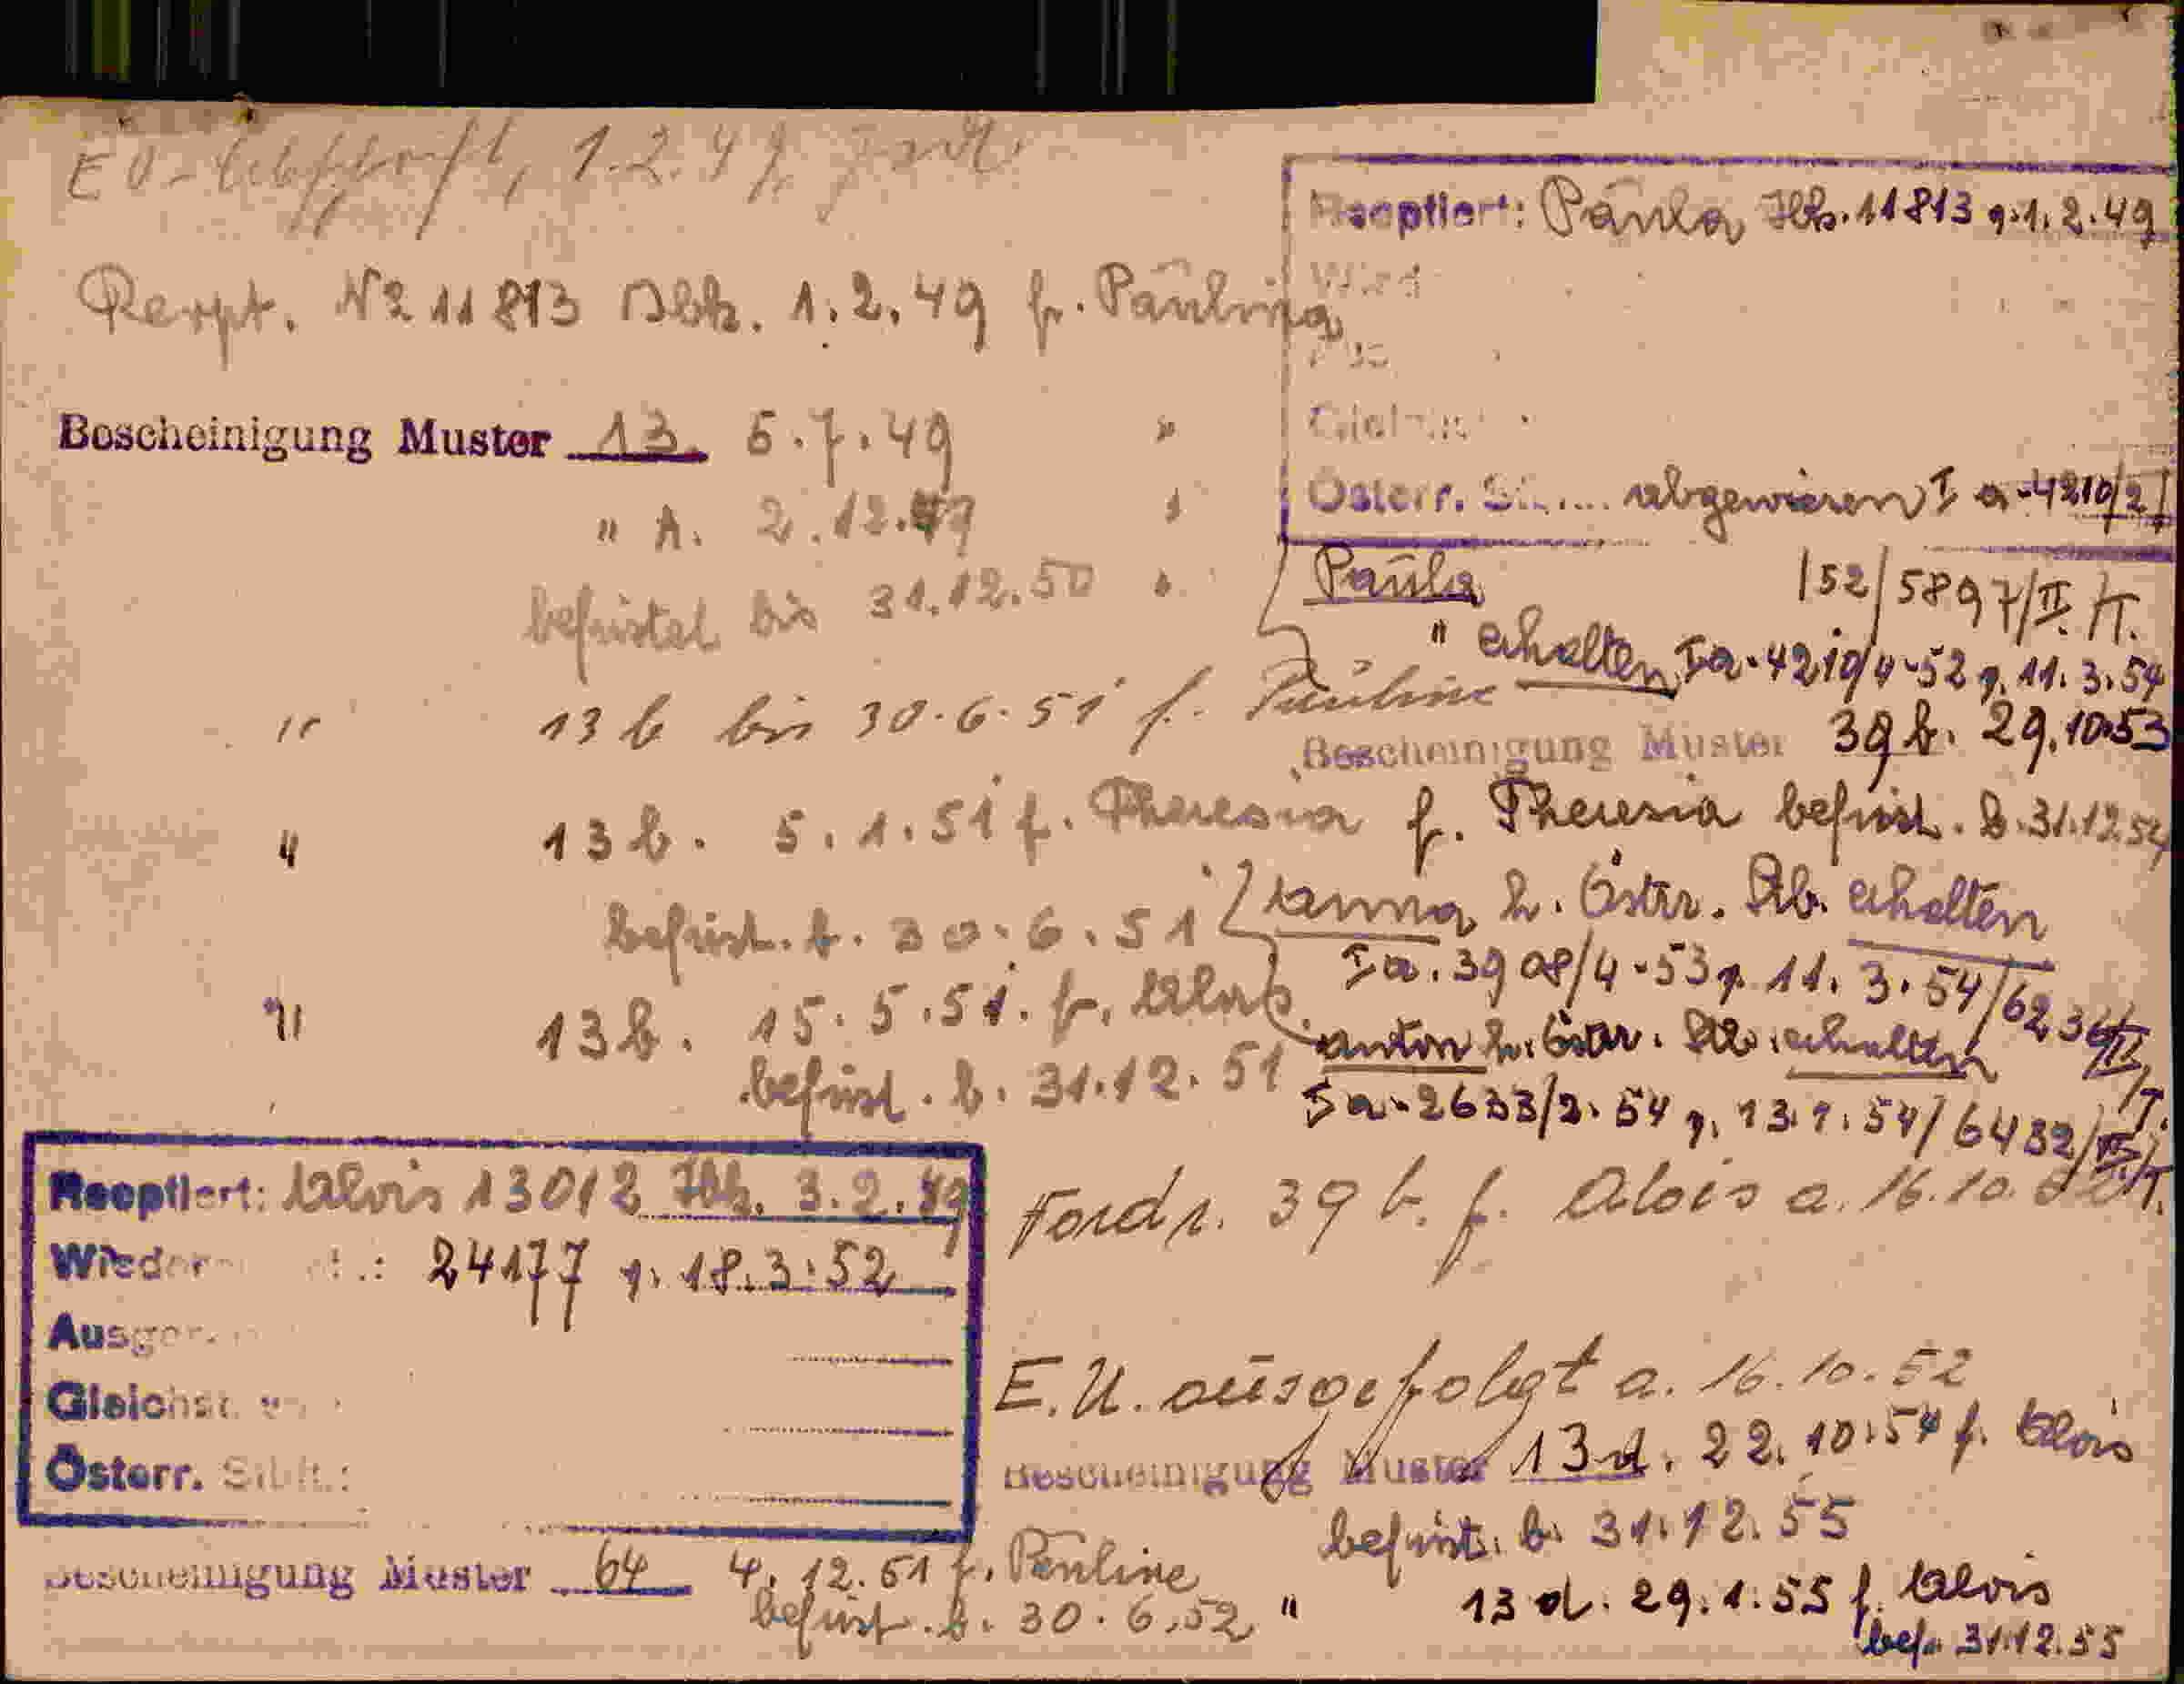 EU-Abschrift, 1.2.49
Rezept. No 11813 Hbk. 1.2.49 f. Paulina
Bescheinigung Muster 13. 5.7.49 "
" A. 2.12.49 "
befristet bis 31.12.50 "
" 13 b bis 30.6.51 f. Pauline
" 13 b. 5.1.51 f. Theresia
befrist. b. 30.6.51
" 13 b. 15.5.51. f. Alois
befrist. b. 31.12.51
Reoptiert: Alois 13012 Hbk. 3.2.49
Wieder 24177 v. 18.3.52
Ausger.
Gleichst.
Österr. Stbk.:
Bescheinigung Muster 64 4.12.51 f. Pauline
befrist. b. 30.6.52
Reoptiert: Paula Hbk. 11813 v. 1.2.49
Wied
Aus
Gleichst.
Österr. St.... abgewiesen Ia-4210/2
Paula 152/5897/II/T.
" erhalten Ia-4210/4-52 v. 11.3.54
Bescheinigung Muster 39 b. 29.10.53
f. Theresia befrist. b. 31.12.54
Hanna h. Östr. Stb. erhalten
Ia. 3908/4-53 v. 11.3.54/6236/II/T.
Anton h. Östr. Stb. erhalten
Ia-2633/2-54 v. 13.1.54/6432/II/T.
Fordr. 39 b. f. Alois a. 16.10.52
E.U. ausgefolgt a. 16.10.52
Bescheinigung Muster 13 d. 22.10.54 f. Alois
befrist. b. 31.12.55
" 13 d. 29.1.55 f. Alois
bef. 31.12.55